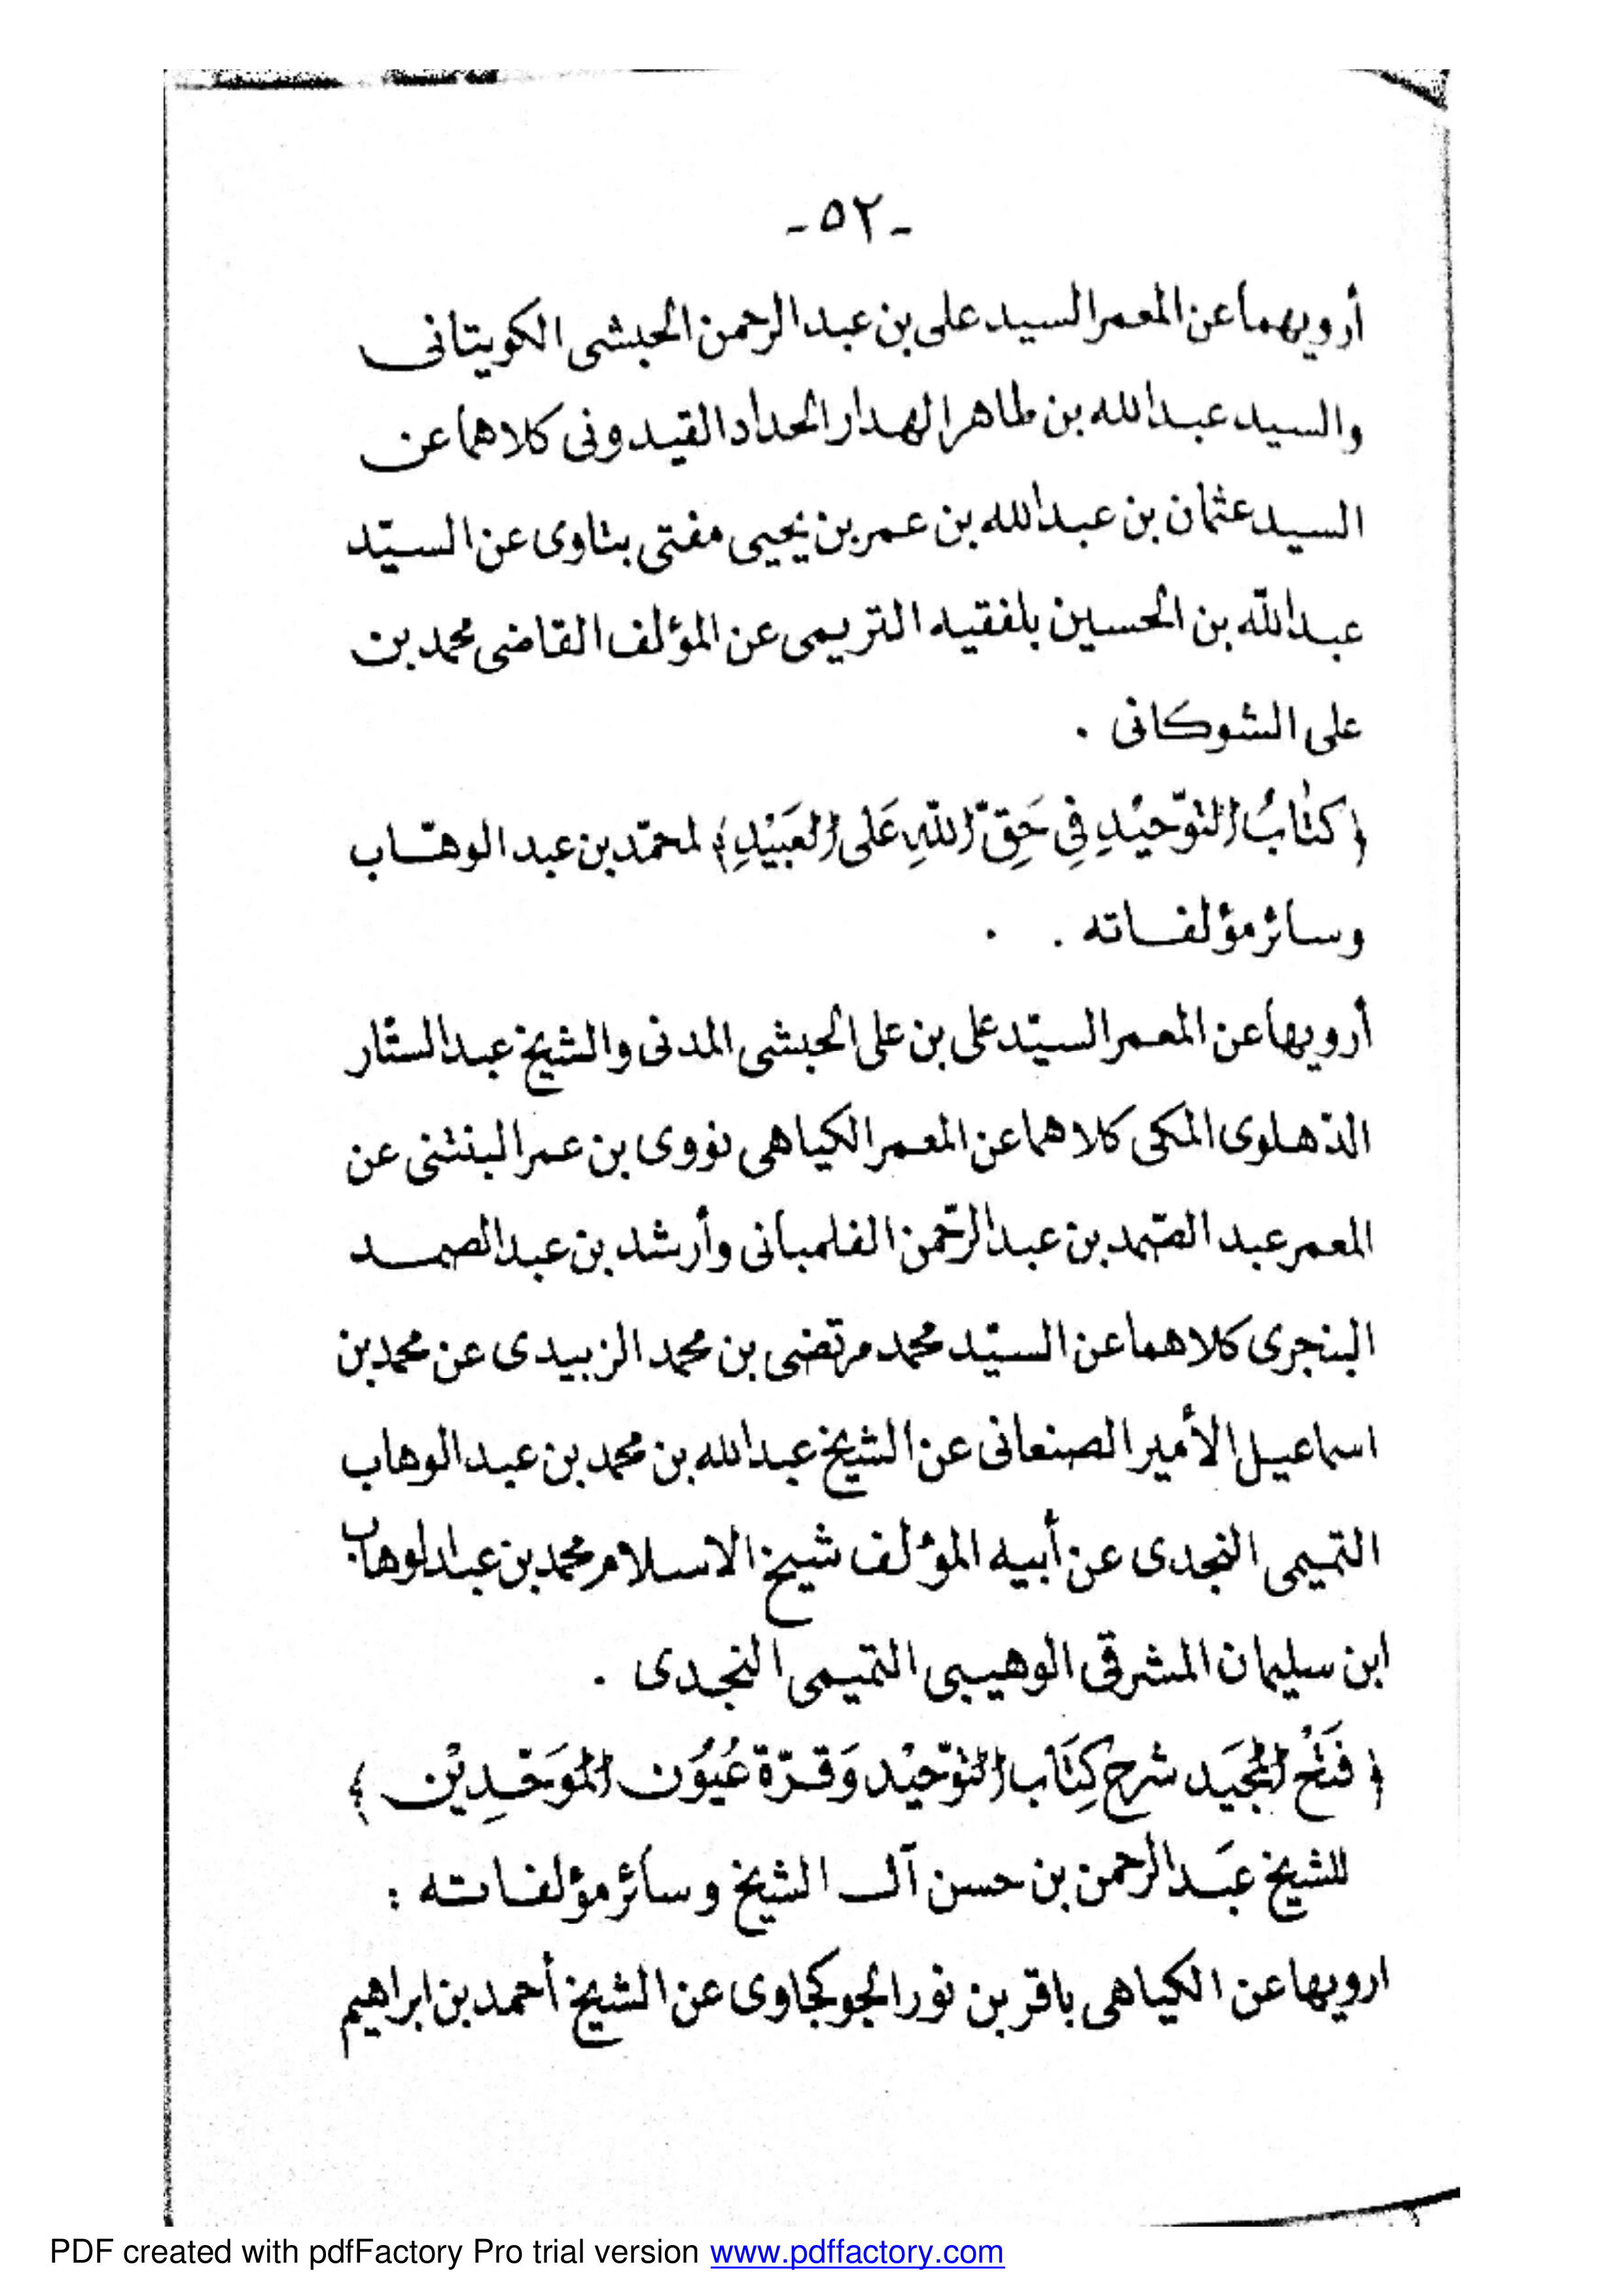 -٥٢-
أرويهما عن المعمر السيد على بن عبد الرحمن الحبشى الكويتانى
والسيد عبد الله بن طاهر الهدار الحداد القيدونى كلاهما عن
السيد عثمان بن عبد الله بن عمر بن يحيى مفتى بتاوى عن السيّد
عبد اللّه بن الحسين بلفقيه التريمى عن المؤلف القاضى محمد بن
على الشوكانى .
﴿كتٰابُ التَّوحيْدِ فِي حَقِّ اللّهِ عَلى العَبيْدِ﴾ لمحمّد بن عبد الوهّاب
وسائر مؤلفاته .
أرويها عن المعمر السيّد على بن على الحبشى المدنى والشيخ عبد الستّار
الدّهلوى المكى كلاهما عن المعمر الكياهى نووى بن عمر البنتنى عن
المعمر عبد الصّمد بن عبد الرّحمن الفلمبانى وأرشد بن عبد الصمد
البنجرى كلاهما عن السيّد محمد مرتضى بن محمد الزبيدى عن محمد بن
اسماعيل الأمير الصنعانى عن الشيخ عبد الله بن محمد بن عبد الوهاب
التميمى النجدى عن أبيه المؤلف شيخ الاسلام محمد بن عبد الوهاب
ابن سليمان المشرقى الوهيبى التميمى النجدى .
﴿ فَتْحُ المجَيد شرح كِتَاب التّوحيْد وَقرّة عُيُوُن الموَحّدِيْن ﴾
للشيخ عبَد الرحمن بن حسن آل الشيخ وسائر مؤلفاته :
ارويها عن الكياهى باقر بن نور الجوكجاوى عن الشيخ أحمد بن ابراهيم
PDF created with pdfFactory Pro trial version www.pdffactory.com